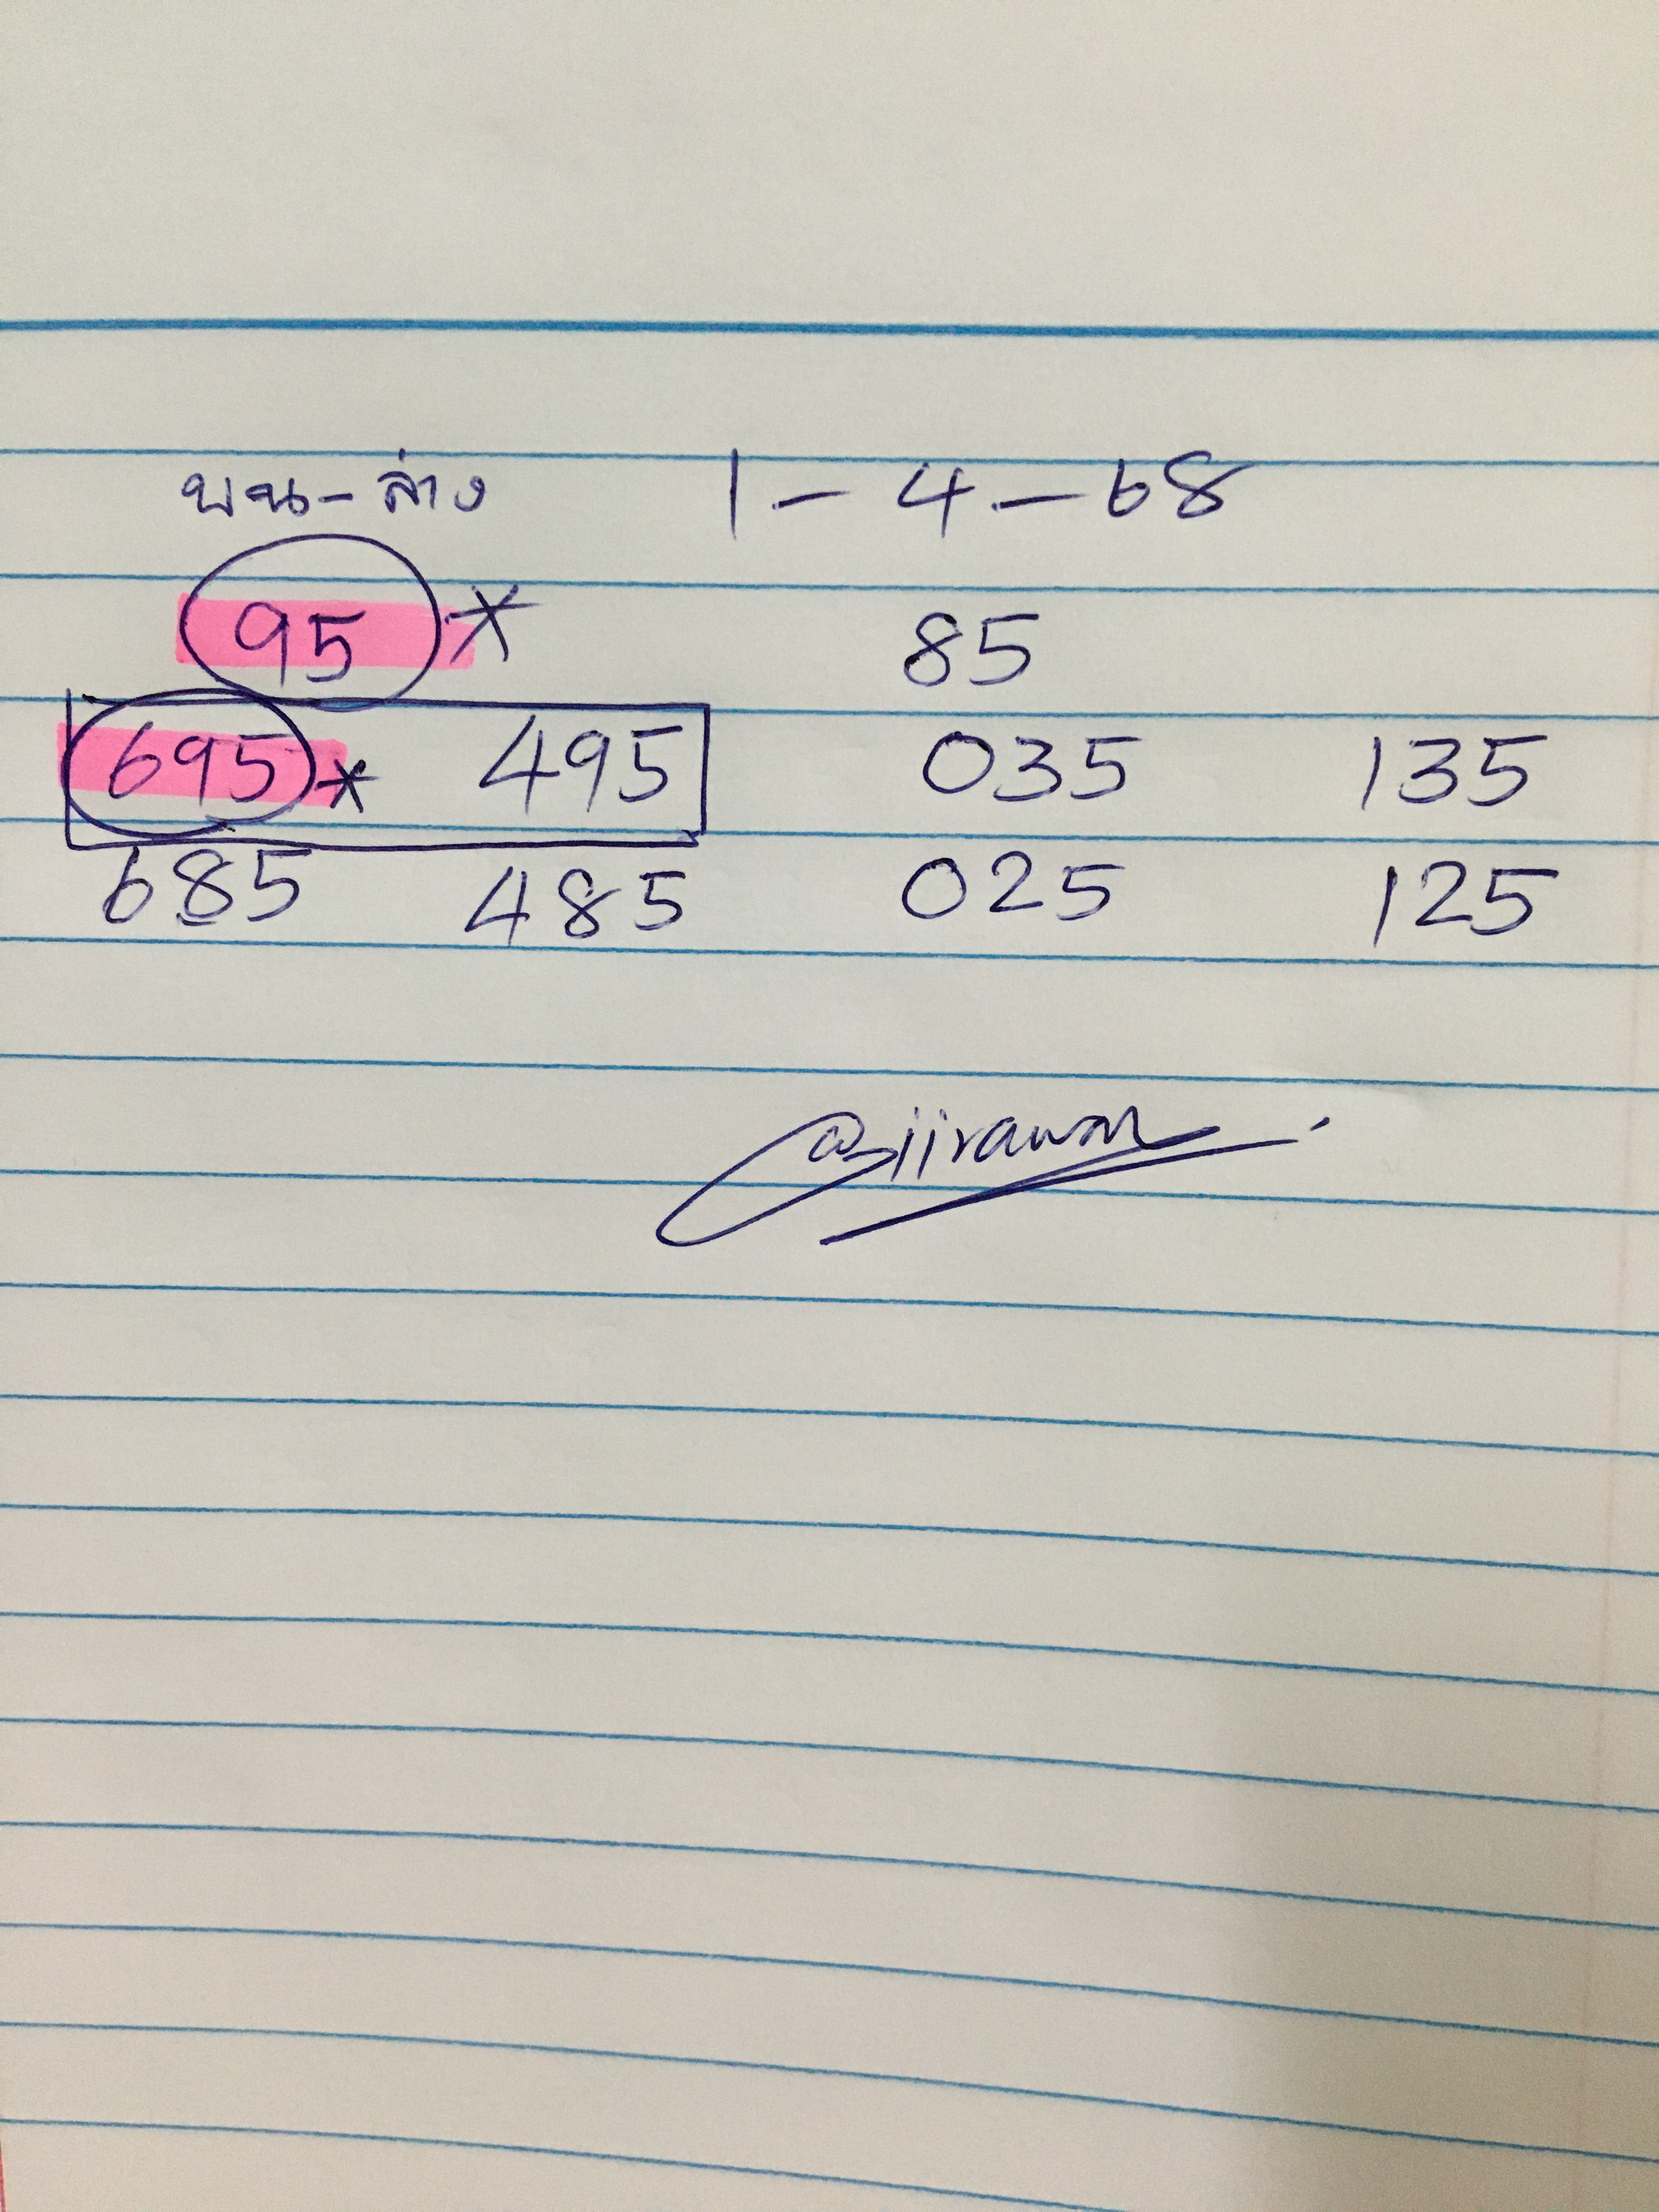 บน-ล่าง 1-4-68
95* 85
695* 495 035 135
685 485 025 125
@jirawan